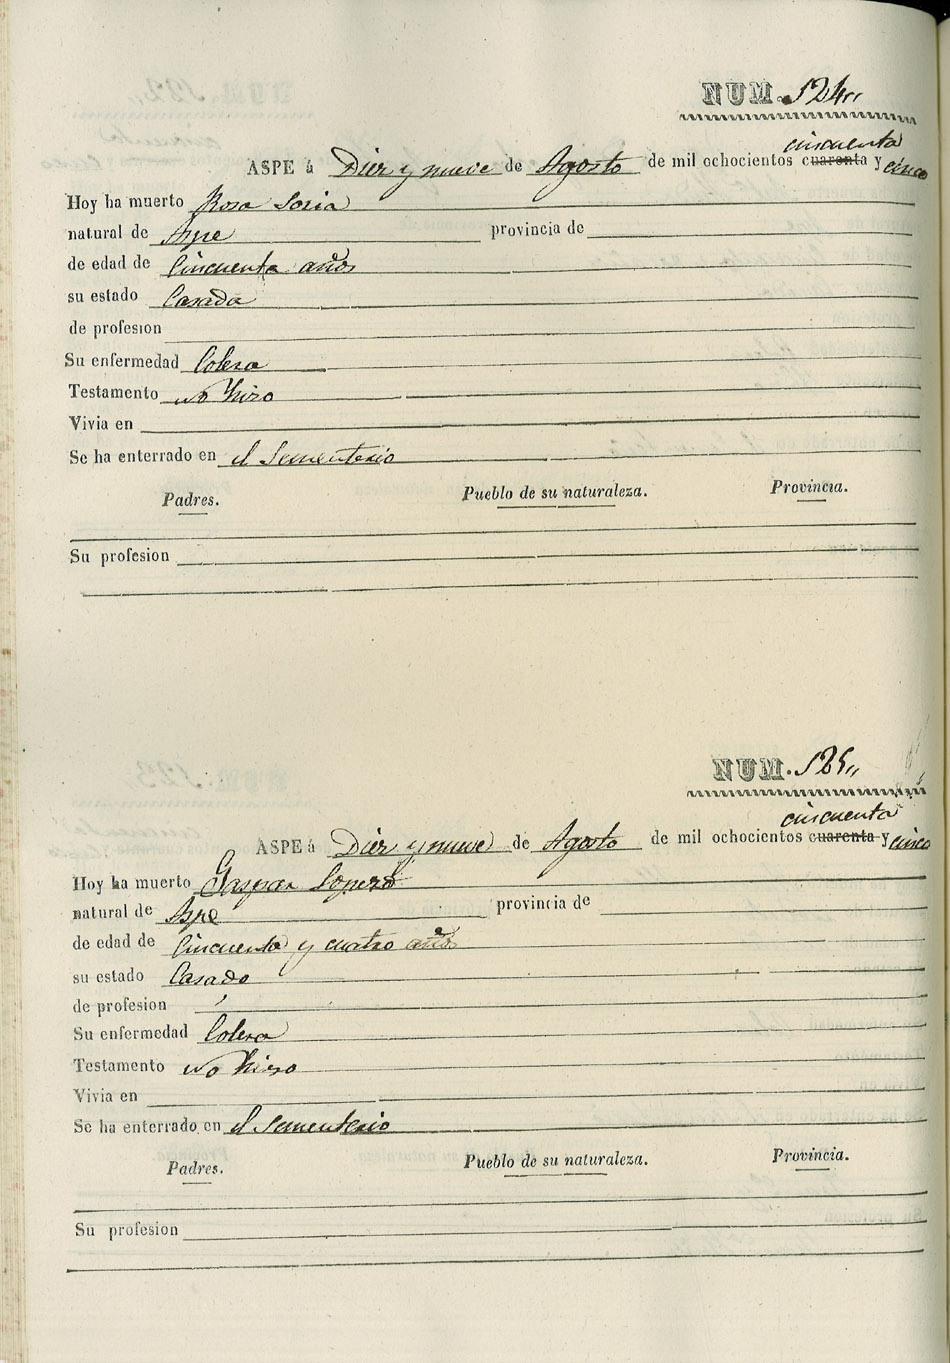 NUM. 124
cincuenta
ASPE á Diez y nueve de Agosto de mil ochocientos cuarenta y cinco
Hoy ha muerto Rosa Soria
natural de Aspe provincia de
de edad de Cincuenta años
su estado Casada
de profesion
Su enfermedad Colera
Testamento no hizo
Vivia en
Se ha enterrado en el Sementerio
Padres. Pueblo de su naturaleza. Provincia.
Su profesion
NUM. 125
cincuenta
ASPE á Diez y nueve de Agosto de mil ochocientos cuarenta y cinco
Hoy ha muerto Gaspar
natural de Aspe provincia de
de edad de Cincuenta y cuatro años
su estado Casado
de profesion
Su enfermedad Colera
Testamento no hizo
Vivia en
Se ha enterrado en el Sementerio
Padres. Pueblo de su naturaleza. Provincia.
Su profesion